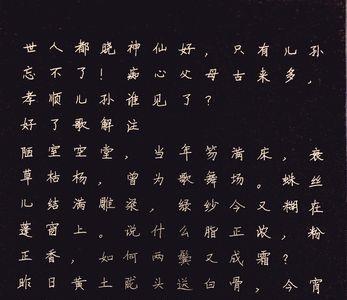 世人都晓神仙好，只有儿孙
忘不了！痴心父母古来多，
孝顺儿孙谁见了？
好了歌解注
陋室空堂，当年笏满床，衰
草枯杨，曾为歌舞场。蛛丝
儿结满雕梁，绿纱今又糊在
蓬窗上。说什么脂正浓，粉
正香，如何两鬓又成霜？
昨日黄土陇头送白骨，今宵